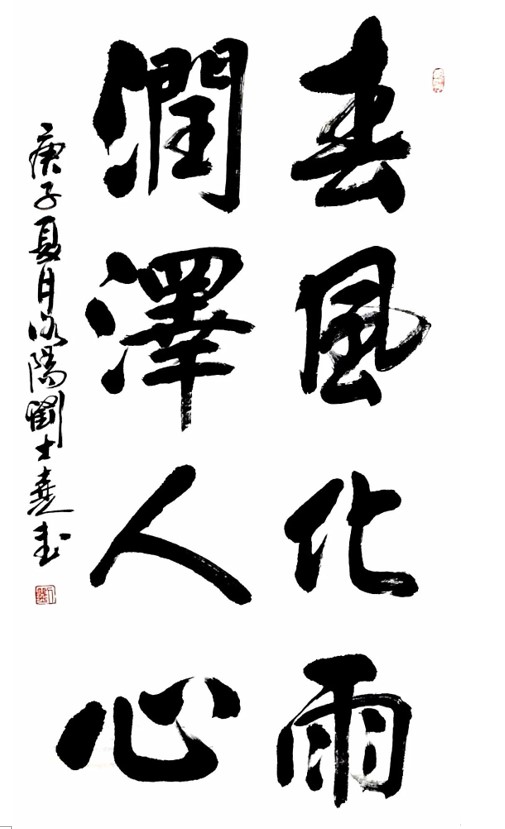 春風化雨
潤澤人心
庚子夏月洛陽劉士堯书